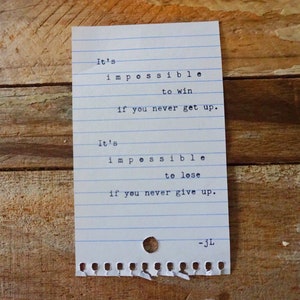 It's
i m p o s s i b l e
to win
if you never get up.
It's
i m p o s s i b l e
to lose
if you never give up.
-jL